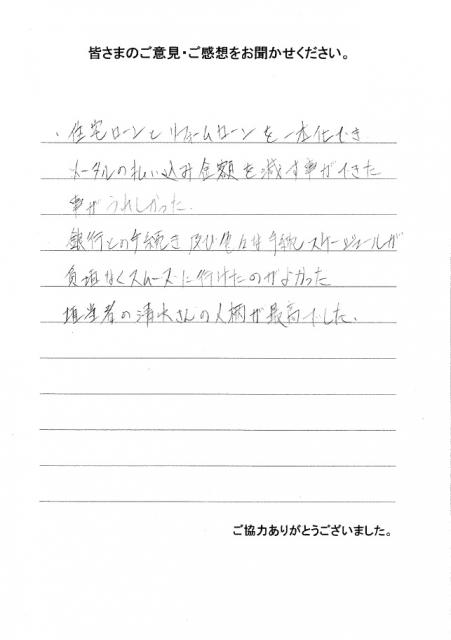 皆さまのご意見・ご感想をお聞かせください。
・住宅ローンとリフォームローンを一本化でき
メータルの払い込み金額を減す事ができた
事がうれしかった.
銀行との手続き及び色々な手続スケージュールが
負担なくスムーズに行けたのがよかった
担当者の清水さんの人柄が最高でした.
ご協力ありがとうございました。